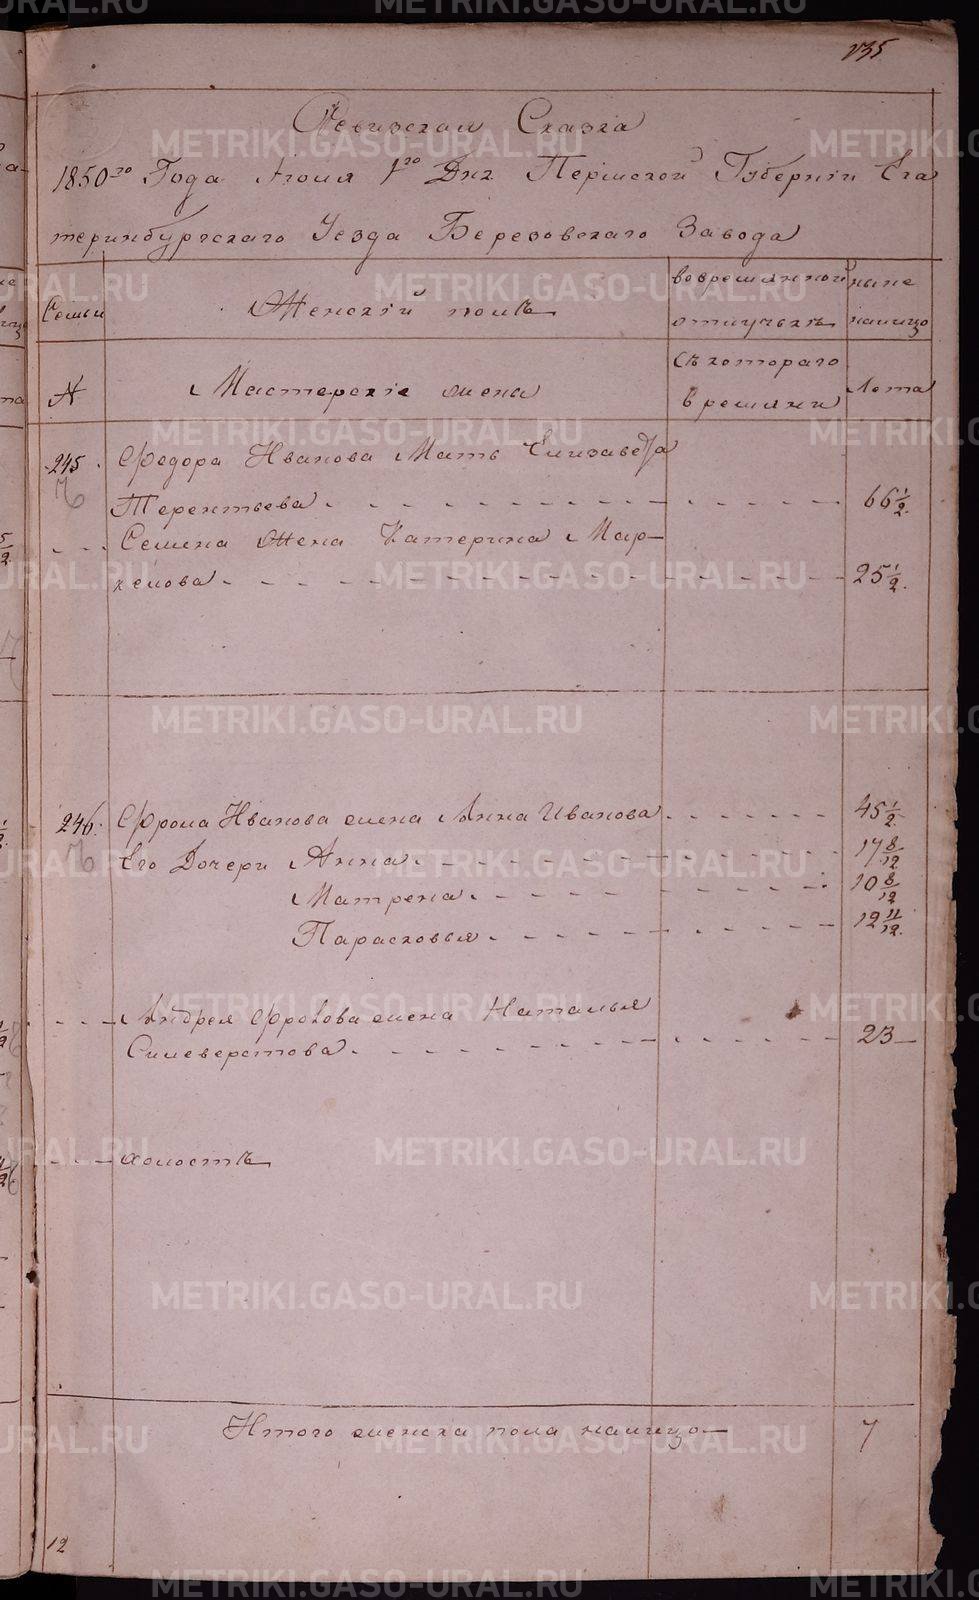 235
Ревизская Сказка
1850го Года Июля 1го Дня Пермской Губернии Ека
теринбургскаго Уезда Березовскаго Завода
Семьи
Женский полъ
вовременной
отлучкъ
ныне
налицо
№
Мастерские жена
съ котораго
времяни
Лета
245.
Федора Иванова Мать Елизавета
Терентьева
66 1/2.
Семена жена Катерина Мар-
келова
25 1/2.
246.
Фрола Иванова жена Анна Иванова
45 1/2.
Его Дочери Анна
17 8/12
Матрена
10 8/12
Парасковья
12 11/12.
Андрея Фролова жена Наталья
Силеверстова
23
холостъ
Итого женска пола налицо
7
12
METRIKI.GASO-URAL.RU